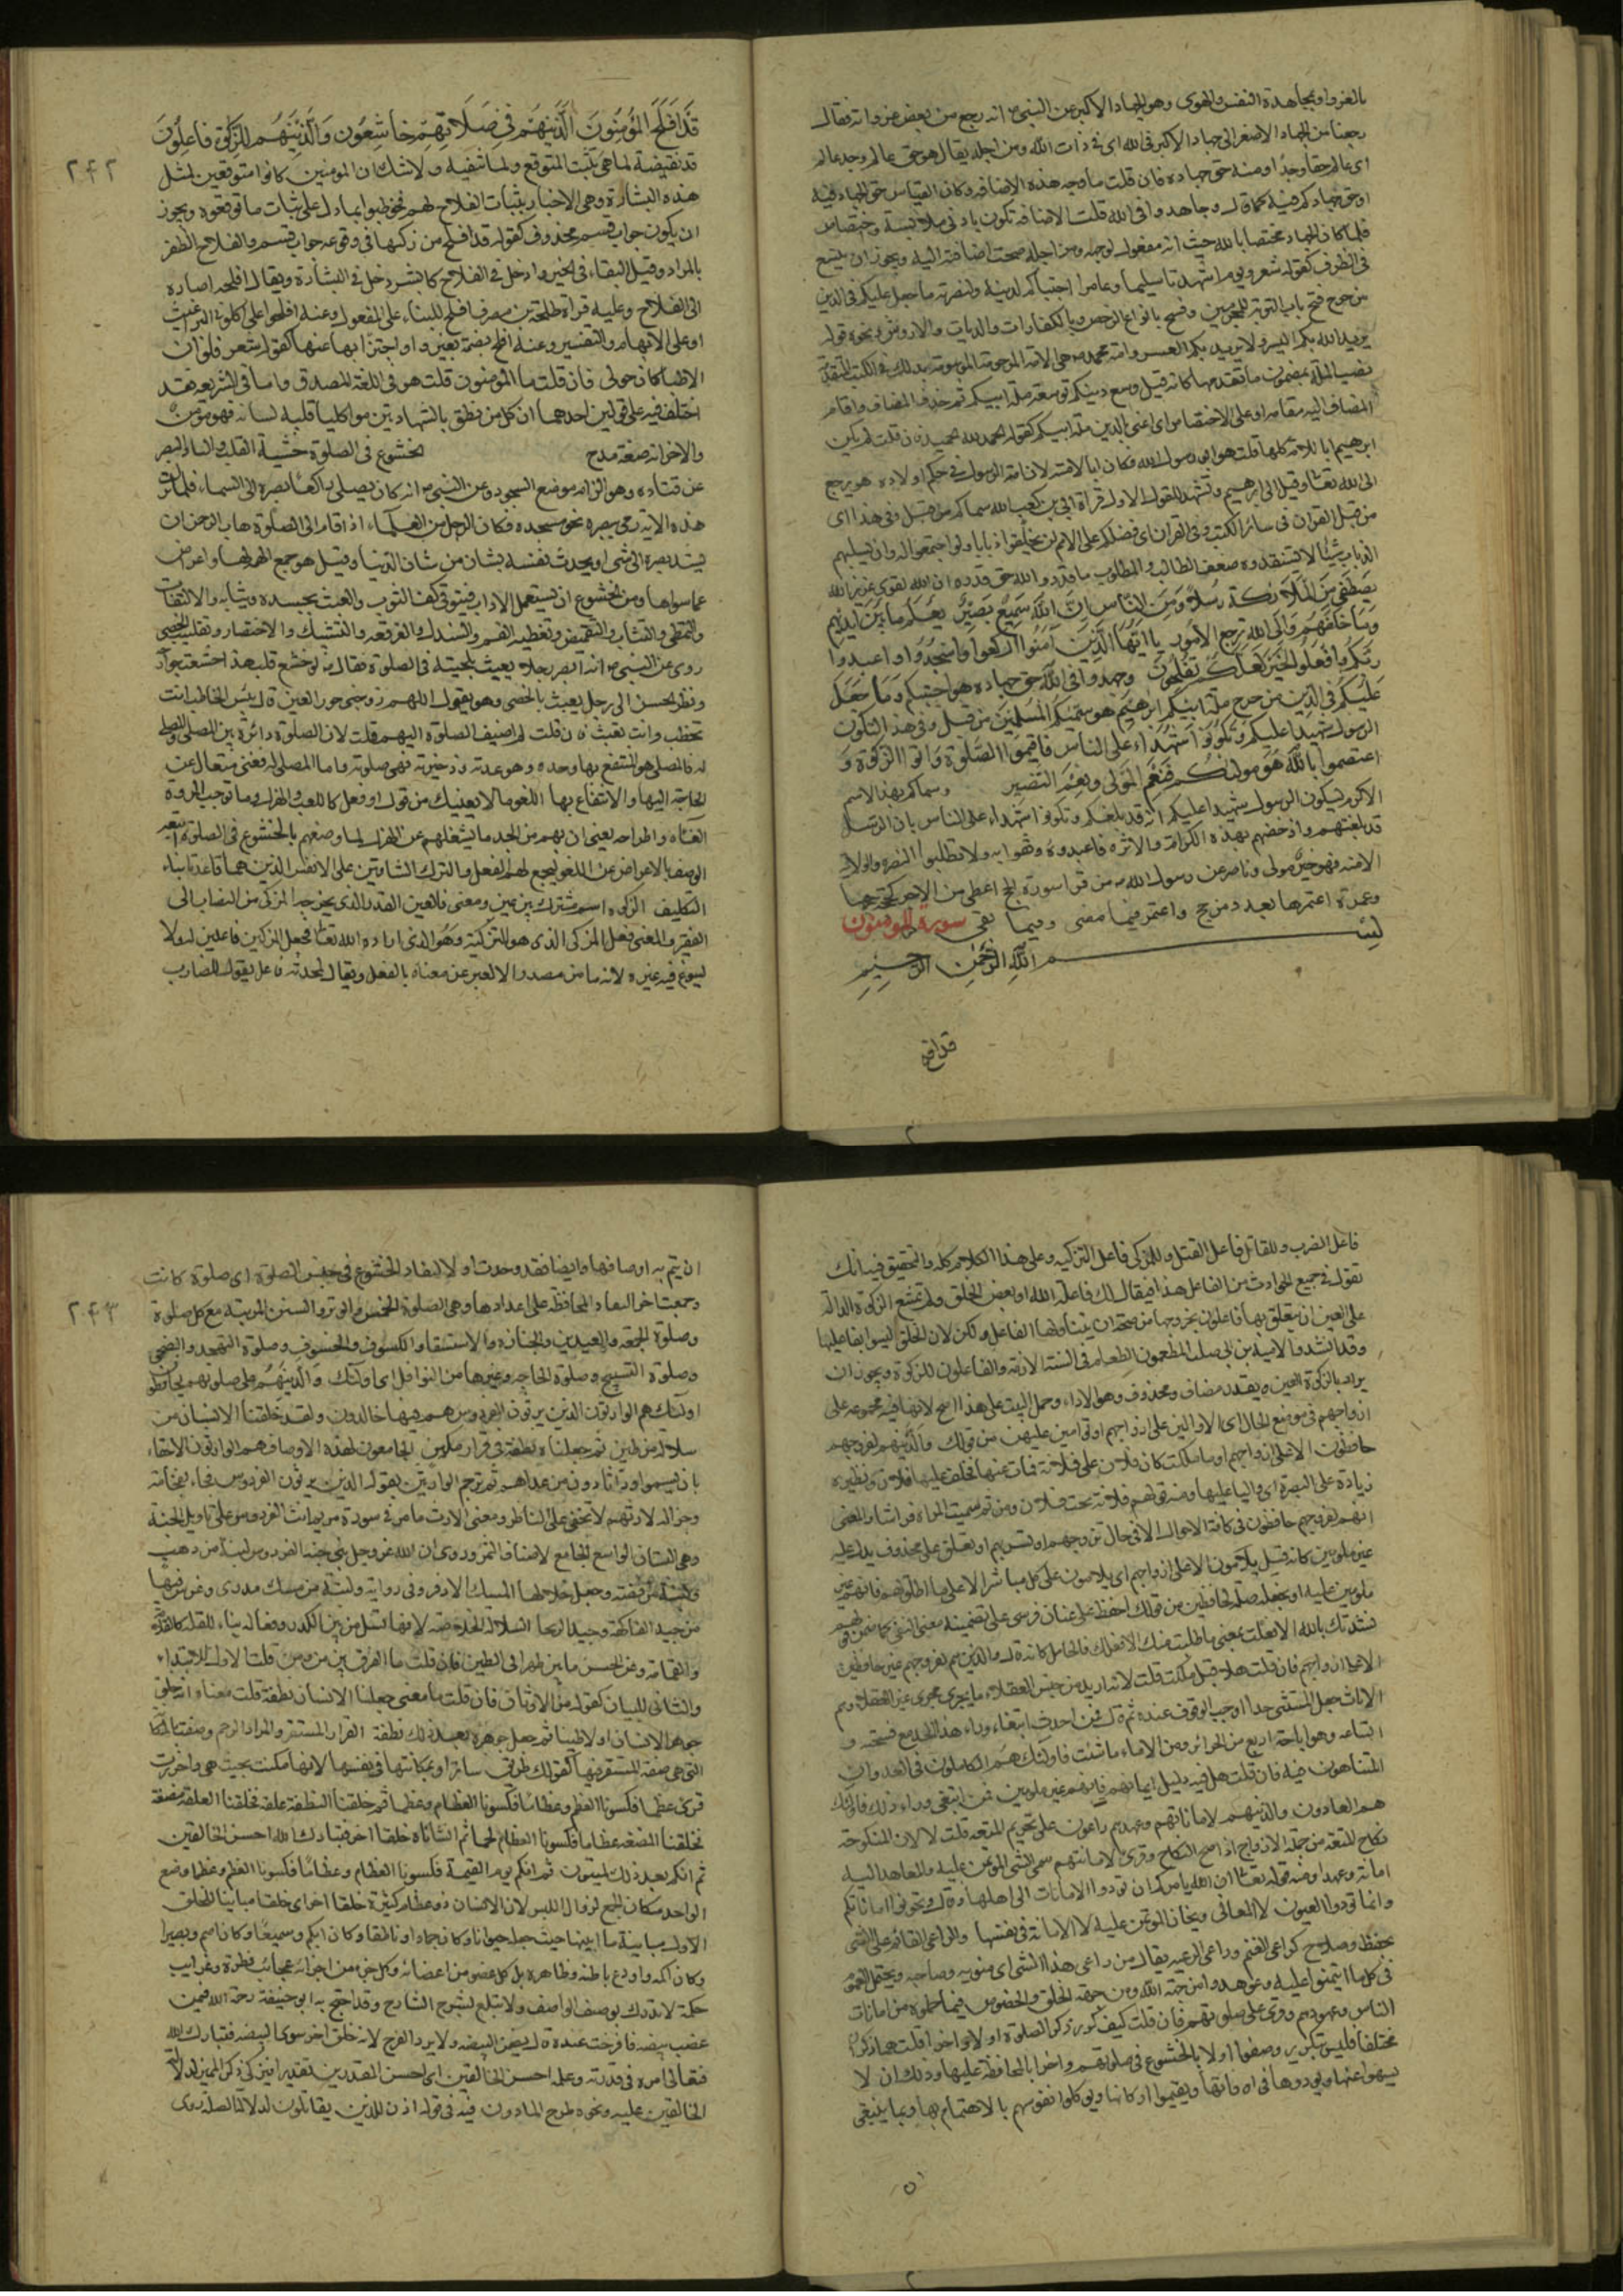 بالغزو او بمجاهدة النفس والهوى وهو الجهاد الاكبر عن النبي انه رجع من بعض غزواته فقال
رجعنا من الجهاد الاصغر الى الجهاد الاكبر في الله اى فى ذات الله ومن اجله يقال هو حق عالم وجد عالم
اى عالم حقا وجدا ومنه حق جهاده فان قلت ما وجه هذه الاضافه وكان القياس حق الجهاد فيه
او حق جهادكم فيه كما قال وجاهدوا فى الله قلت الاضافة تكون بادنى ملابسة واختصاص
فلما كان الجهاد مختصا بالله حيث انه مفعول لوجهه ومن اجله صحت اضافته اليه ويجوز ان يتسع
فى الظرف كقوله شعر ويوم شهدناه سليما وعامرا اجتباكم لدينه ولنصرته ما جعل عليكم فى الدين
من حرج فتح باب التوبة للمجرمين وفسح بانواع الرخص وبالكفارات والديات والاروش ونحوه قوله
يريد الله بكم اليسر ولا يريد بكم العسر وامة محمد هى الامة المرحومة الموسومة بذلك فى الكتب المتقدمة
نصب الملة بمضمون ما تقدمها كانه قيل وسع دينكم توسعة ملة ابيكم ثم حذف المضاف واقام
المضاف اليه مقامه او على الاختصاص اى اعنى بالدين ملة ابيكم كقوله الحمد لله الحميد فان قلت لم يكن
ابرهيم ابا للامة كلها قلت هو ابو رسول الله فكان ابا لامته لان امة الرسول فى حكم اولاده هو يرجع
الى الله تعالى وقيل الى ابرهيم وتشهد للقول الاول قراة ابى بن كعب الله سماكم من قبل وفى هذا اى
من قبل القران فى سائر الكتب وفى القران اى فضلكم على الامم لن يخلقوا ذبابا ولو اجتمعوا له وان يسلبهم
الذباب شيئا لا يستنقذوه ضعف الطالب والمطلوب ما قدروا الله حق قدره ان الله لقوى عزيز الله
يصطفى من الملائكة رسلا ومن الناس ان الله سميع بصير يعلم ما بين ايديهم
وما خلفهم والى الله ترجع الامور يا ايها الذين امنوا اركعوا واسجدوا واعبدوا
ربكم وافعلوا الخير لعلكم تفلحون وجهدوا فى الله حق جهاده هو اجتبيكم وما جعل
عليكم فى الدين من حرج ملة ابيكم ابرهيم هو سميكم المسلمين من قبل وفى هذا ليكون
الرسول شهيدا عليكم وتكونوا شهداء على الناس فاقيموا الصلوة واتوا الزكوة و
اعتصموا بالله هو موليكم فنعم المولى ونعم النصير وسماكم بهذا الاسم
الاكرم ليكون الرسول شهيدا عليكم انه قد بلغكم وتكونوا شهداء على الناس بان الرسل
قد بلغتهم واذ خصهم بهذه الكرامة والاثره فاعبدوه وثقوا به ولا تطلبوا النصرة والولاية
الا منه فهو خير مولى وناصر عن رسول الله من قرا سورة الحج اعطى من الاجر كحجة حجها
وعمرة اعتمرها بعدد من حج واعتمر فيما مضى وفيما بقى سورة المومنون
بسم الله الرحمن الرحيم
قد افلح
٢٤٢
قد افلح المؤمنون الذينهم فى صلاتهم خاشعون والذينهم للزكوة فاعلون
قد نقيضة لما هى تثبت المتوقع ولما تنفيه ولا شك ان المومنين كانوا متوقعين لمثل
هذه البشارة وهى الاخبار بثبات الفلاح لهم فخوطبوا بما دل على ثبات ما توقعوه ويجوز
ان يكون جواب قسم محذوف كقوله قد افلح من زكيها فى وقوعه جواب قسم والفلاح الظفر
بالمراد وقيل البقاء فى الخير وادخل فى الفلاح كابشر دخل فى البشارة ويقال افلحه اصاره
الى الفلاح وعليه قراة طلحة بن مصرف افلح للبناء على المفعول وعنه افلحوا على اكلونى البراغيث
او على الابهام والتفسير وعنه افلح بضمة بغير واو اجتزا بها عنها كقوله شعر فلو ان
الاطبا كان حولى فان قلت ما المؤمنون قلت هو فى اللغة المصدق واما فى الشريعه فقد
اختلف فيه على قولين احدهما ان كل من نطق بالشهادتين مواكليا قلبه لسانه فهو مؤمن
والاخر انه صفة مدح الخشوع فى الصلوة خشية القلب والباد البصر
عن قتاده وهو الزامه موضع السجود وعن النبى انه كان يصلى رافعا بصره الى السماء فلما نزلت
هذه الاية رمى ببصره نحو مسجده فكان الرجل من العلماء اذا قام الى الصلوة هاب الرحمن ان
يشد بصره الى شئ او يحدث نفسه بشان من شان الدنيا وقيل هو جمع الهمة لها والاعراض
عما سواها ومن الخشوع ان يستعمل الاداب فيتوقى كف الثوب والعبث بجسده وثيابه والالتفات
والتمطى والتثاوب والتغميض وتغطية الفم والسدل والفرقعه والتشبك والاختصار وتقليب الحصى
روى عن النبى انه ابصر رجلا يعبث بلحيته فى الصلوة فقال لو خشع قلبه هذا خشعت جوارحه
ونظر الحسن الى رجل يعبث بالحصى وهو يقول اللهم زوجنى حور العين قال بئس الخاطب انت
تخطب وانت تعبث فان قلت لم اضيف الصلوة اليهم قلت لان الصلوة دائرة بين المصلى والمصلى
له فالمصلى هو المنتفع بها وحده وهو عدته وذخيرته فهى صلوته واما المصلى له فغنى متعال عن
الحاجة اليها والانتفاع بها اللغو ما لا يعنيك من قول او فعل كاللعب والهزل وما توجب المروة
الغآه واطراحه يعنى ان بهم من الجد ما يشغلهم عن الهزل لما وصفهم بالخشوع فى الصلوة اتبعه
الوصف بالاعراض عن اللغو ليجمع لهم الفعل والترك الشاقين على الانفس الذين هما قاعدتا بناء
التكليف الزكوة اسم مشترك بين عين ومعنى فالعين القدر الذى يخرجه المزكى من النصاب الى
الفقير والمعنى فعل المزكى الذى هو التزكية وهو الذى اراده الله تعالى فجعل المزكين فاعلين له ولا
يسوغ فيه غيره لانه ما من مصدر الا يعبر عن معناه بالفعل ويقال لمحدثه فاعل يقول للضارب
فاعل الضرب وللقاتل فاعل القتل وللمزكى فاعل التزكيه وعلى هذا الكلام كله والتحقيق فيه انك
تقول فى جميع الحوادث من الفاعل هذا فيقال لك فاعله الله او بعض الخلق ولم تمتنع الزكوة الدالة
على العين ان يتعلق بها فاعلون بخروجها من صحة ان يتناولها الفاعل ولكن لان الخلق ليسوا بفاعليها
وقد انشدوا لامية بن ابى صلت المطعمون الطعام فى السنة الازمة والفاعلون للزكوة ويجوز ان
يراد بالزكوة العين ويقدر مضاف محذوف وهو الاداء وحمل البيت على هذا اصح لانها فيه مجموعه على
ازواجهم فى موضع الحال اى الا والين على ازواجهم او قوامين عليهن من قولك والذينهم لفروجهم
حافظون الا على ازواجهم او ما ملكت كان فلان على فلانة فمات عنها فخلف عليها فلان ونظيره
زيادة على البصرة اى واليا عليها ومنه قولهم فلانة تحت فلان ومن ثم سميت المراه فراشا والمعنى
انهم لفروجهم حافظون فى كافة الاحوال الا فى حال تزوجهم او تسريهم او تعلق على بمحذوف يدل عليه
غير ملومين كانه قيل يلامون الا على ازواجهم اى يلامون على كل مباشر الا على ما اطلق لهم فانهم غير
ملومين عليه او يجعله صلة لحافظين من قولك احفظ على عنان فرسى على تضمينه معنى النفى كما ضمن قولهم
نشدتك بالله الا فعلت بمعنى ما طلبت منك الا فعلك
الا على ازواجهم فان قلت هلا قيل من ملكت قلت لانه اريد من جنس العقلاء ما يجرى مجرى غير العقلاء وهم
الاناث جعل المستثنى حدا اوجب الوقوف عنده ثم قال فمن احدث ابتغاء وراء هذا الحد مع فسحته و
اتساعه وهو اباحة اربع من الحرائر ومن الاماء ما شئت فاولئك هم الكاملون فى العدوان
المتناهون فيه فان قلت هل فيه دليل ايمانهم فانهم غير ملومين فمن ابتغى وراء ذلك فاولئك
هم العادون والذينهم لاماناتهم وعهدهم راعون على تحريم المتعه قلت لا لان المنكوحة
نكاح المتعه من جملة الازواج اذا صح النكاح وقرئ لامانتهم سمى الشئ الموتمن عليه والمعاهد اليه
امانة وعهدا ومنه قوله تعالى ان الله يامركم ان تودوا الامانات الى اهلها وقال وتخونوا اماناتكم
وانما تودوا العيون لا المعانى ويخان الموتمن عليه لا الامانة فى نفسها والراعى القائم على الشئ
بحفظ وصلاح كراعى الغنم وراعى الرعيه يقال من راعى هذا الشئ اى متوليه وصاحبه ويحتمل العموم
فى كل ما ائتمنوا عليه وعوهدوا من جهة الله ومن جهة الخلق والخصوص فيما حملوه من امانات
الناس وعهودهم وقرئ على صلوتهم فان قلت كيف كرر ذكر الصلوة اولا واخرا قلت هما ذكران
مختلفان فليس بتكرير وصفوا اولا بالخشوع فى صلوتهم واخرا بالمحافظة عليها وذلك ان لا
يسهوا عنها ويودوها فى اوقاتها ويقيموا اركانها ويوكلوا نفوسهم بالاهتمام بها وبما ينبغى
٢٤٣
ان يتم به اوصافها وايضا فقد وحدت اولا ليفاد الخشوع فى جنس الصلوة اى صلوة كانت
وجمعت اخرا ليفاد المحافظة على اعدادها وهى الصلوة الخمس والوتر والسنن المرتبه مع كل صلوة
وصلوة الجمعه والعيدين والجنازه والاستسقا والكسوف والخسوف وصلوة التهجد والضحى
وصلوة التسبيح وصلوة الحاجه وغيرها من النوافل اى اولئك والذينهم على صلوتهم يحافظون
اولئك هم الوارثون الذين يرثون الفردوس هم فيها خالدون ولقد خلقنا الانسان من
سلالة من طين ثم جعلناه نطفة فى قرار مكين الجامعون لهذه الاوصاف هم الوارثون الاحقاء
بان يسموا وراثا دون من عداهم ثم ترجم الوارثين بقوله الذين يرثون الفردوس فجاء بفخامة
وجزالة لارثهم لا تخفى على الناظر ومعنى الارث ما مر فى سورة مريم انث الفردوس على تاويل الجنة
وهى البستان الواسع الجامع لاصناف الثمر وروى ان الله عز وجل بنى جنة الفردوس لبنة من ذهب
ولبنة من فضة وجعل خلالها المسك الاذفر وفى رواية ولبنة من مسك مدرى وغرس فيها
من جيد الفاكهة وجيد الريحا السلالة الخلاصة لانها تسل من بين الكدر وفعاله بناء للقلة كالقلامة
والقمامة وعن الحسن ما بين ظهرانى الطين فان قلت ما الفرق بين من ومن قلت الاول للابتداء
والثانى للبيان كقوله من الاوثان فان قلت ما معنى جعلنا الانسان نطفة قلت معناه انه خلق
جوهر الانسان اولا طينا ثم جعل جوهره بعد ذلك نطفة القرار المستقر والمراد الرحم وصفت بالمكانة
التى هى صفة المستقر فيها كقولك طريق سائر او بمكانتها فى نفسها لانها مكنت بحيث هى واحرزت
قرئ عظما فكسونا العظم وعظاما فكسونا العظام وعظما ثم خلقنا النطفة علقة فخلقنا العلقة مضغة
فخلقنا المضغه عظاما فكسونا العظام لحما ثم انشاناه خلقا اخر فتبارك الله احسن الخالقين
ثم انكم بعد ذلك لميتون ثم انكم يوم القيمة فكسونا العظام وعظاما فكسونا العظم وعظما وضع
الواحد مكان الجمع لزوال اللبس لان الانسان ذو عظام كثيرة خلقا اخر اى خلقا مباينا للخلق
الاول مباينة ما ابينها حيث جعله حيوانا وكان جمادا وناطقا وكان ابكم وسميعا وكان اصم وبصيرا
وكان اكمه واودع باطنه وظاهره بل كل عضو من اعضائه وكل جزء من اجزائه عجائب فطرة وغرايب
حكمة لا تدرك بوصف الواصف ولا تبلغ بشرح الشارح وقد احتج به ابو حنيفة رحمة الله فيمن
غصب بيضه فافرخت عنده قال يضمن البيضه ولا يرد الفرخ لانه خلق اخر سوى البيضه فتبارك الله
فتعالى امره فى قدرته وعلمه احسن الخالقين اى احسن المقدرين تقديرا فترك ذكر المميز لدلالة
الخالقين عليه ونحوه طرح الماذون فيه فى قوله اذن للذين يقاتلون لدلالة الصلة روى